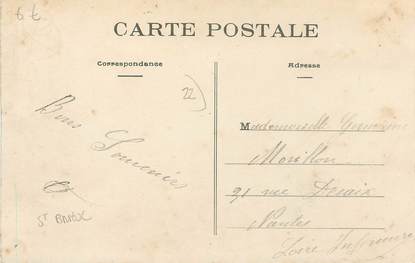 6 €
CARTE POSTALE
Correspondance
Adresse
22
Bons
Souvenirs
Mademoiselle
Morillon
21 rue Desaix
Nantes
Loire Inférieure
ST BRIEUC